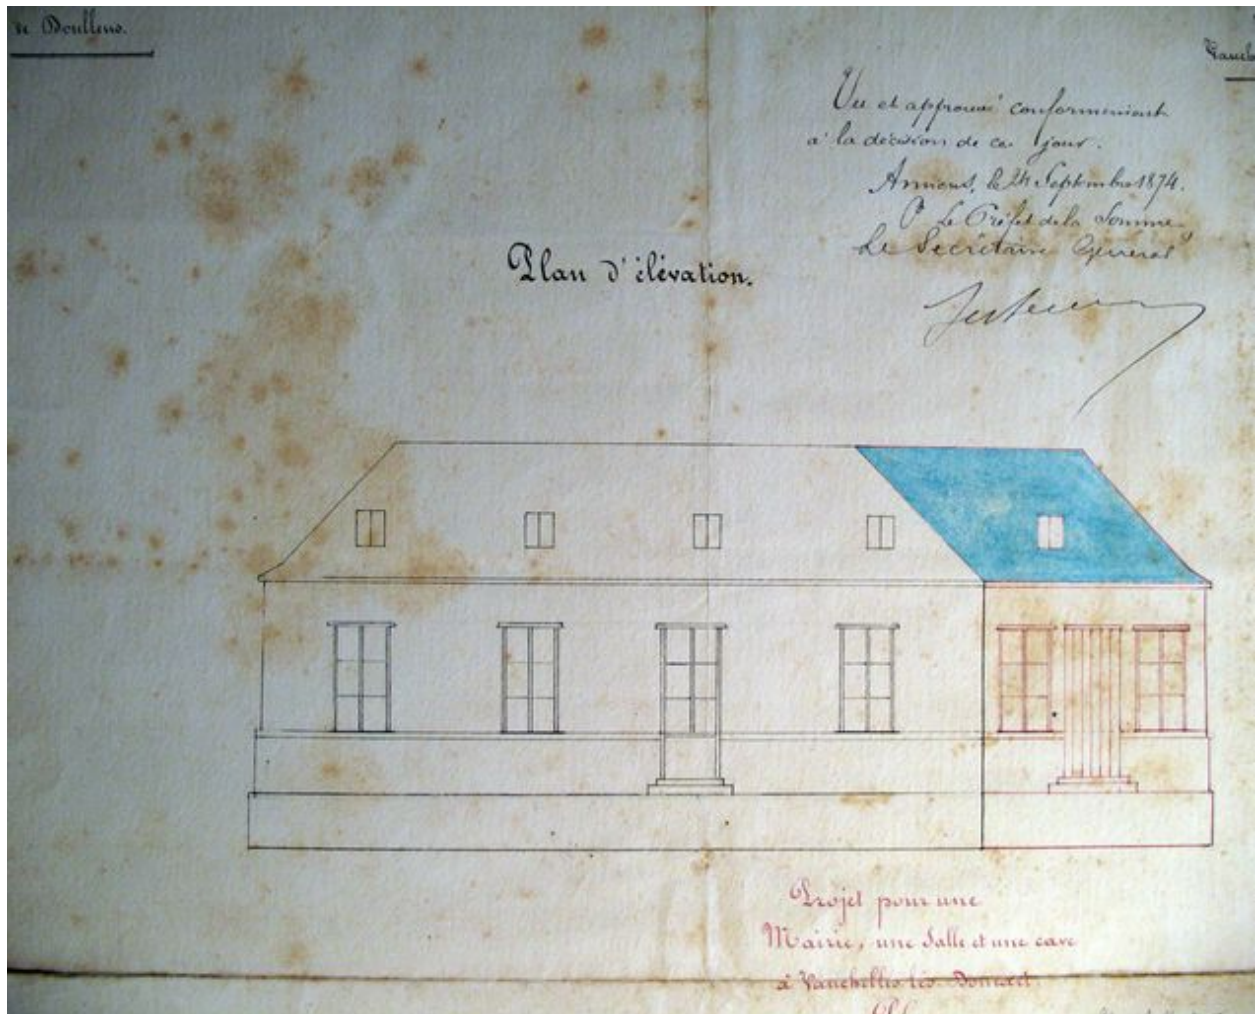 de Doullens.
Vauch
Vu et approuvé conformément
à la décision de ce jour.
Amiens, le 24 Septembre 1874.
Le Préfet de la Somme
Le Secrétaire Général
Plan d'élévation.
Projet pour une
Mairie, une Salle et une cave
à Vauchelles-lès-Domart.